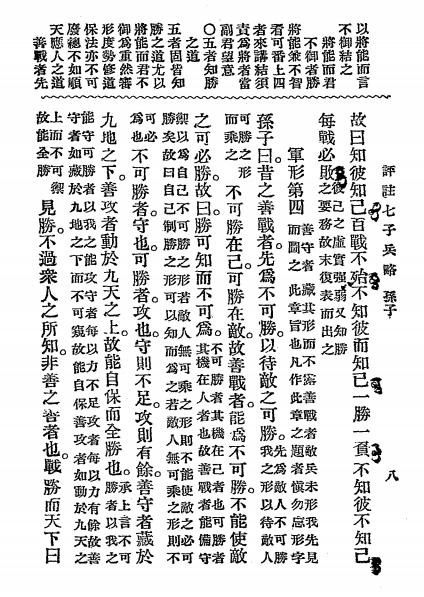 以將能而言
不御結之
將能而君
不御者勝
將能兼不智
看可番上四
者來講結須
責爲將者當
副君望意
〇五者知勝
之道
五者固皆知
勝之道尤以
將能而君不
御爲重然審
形度勢修道
保法亦不可
廢總不如順
天應人之道
善戰者先
評註七子兵略 孫子 八
故曰知彼知己百戰不殆不知彼而知己一勝一負不知彼不知己
每戰必敗彼己之虛實強弱又知勝之要務故末復表而出之
軍形第四 善守者藏其形而不露善戰者敵兵未形我先見而圖之此章旨也凡作此章之題者愼勿忘形字
孫子曰昔之善戰者先爲不可勝以待敵之可勝。先爲敵人不可勝我之形以待敵人
可勝之形而乘之 不可勝在己。可勝在敵。故善戰者。能爲不可勝。不能使敵
之可必勝。故曰。勝可知而不可爲。不可勝者其機在己者也可勝者其機在人者也故善戰者能備守
可以爲自己不可勝之形若敵人無可乘之形則不能使敵之必可
勝矣故曰自己制勝之形可以知而爲之若敵人無可乘之形則不
可必爲也 不可勝者。守也。可勝者。攻也。守則不足。攻則有餘。善守者藏於
九地之下。善攻者動於九天之上。故能自保而全勝也。承上言不可勝者以我之
能守可勝者以我之能攻守者每以力不足攻者每以力有餘故善
守者如藏於九地之下而不可窺故能自保善攻者如動於九天之
上而不可禦故能全勝 見勝不過衆人之所知。非善之善者也。戰勝而天下曰